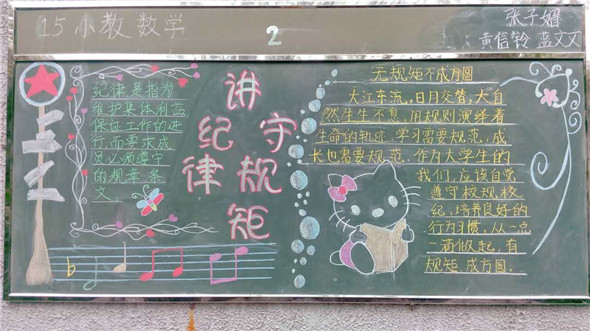 15小教数学
2
张子媚
黄信铃 蓝文文
纪律是指为
维护集体利益
保证工作的进
行而要求成
员必须遵守
的规章条
文
讲
纪律
守
规
矩
无规矩不成方圆
大江东流，日月交替，大自
然生生不息，用规则演绎着
生命的轨迹。学习需要规范，成
长也需要规范。作为大学生的
我们，应该自觉
遵守校规、校
纪，培养良好的
行为习惯，从一点
一滴做起，有
规矩，成方圆。